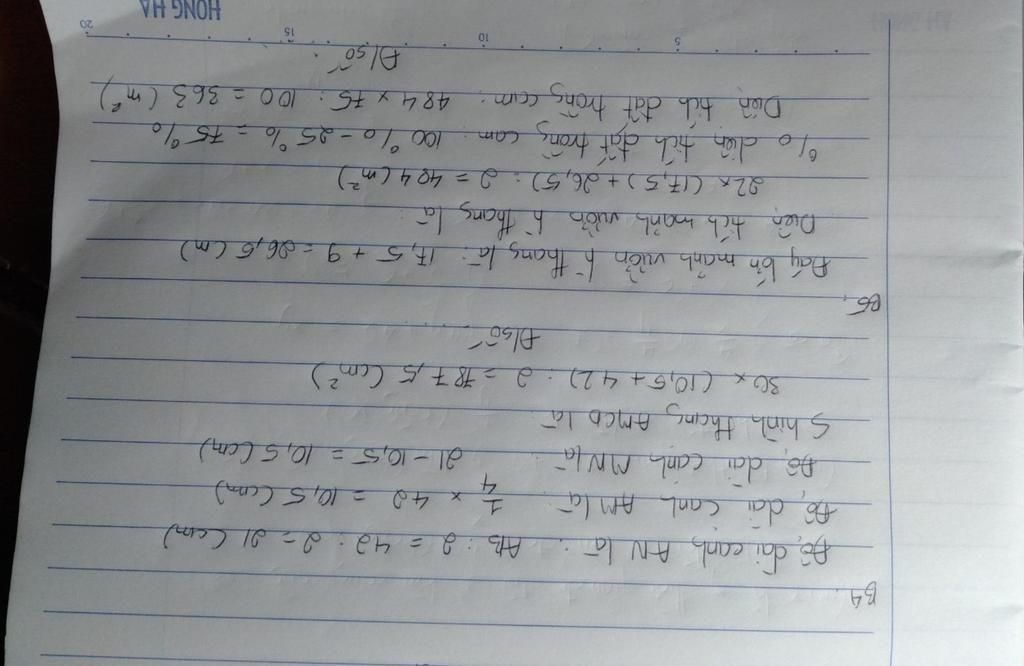 B4.
Độ dài cạnh AN là : AB : 2 = 42 : 2 = 21 (cm)
Độ dài cạnh AM là : 1/4 × 42 = 10,5 (cm)
Độ dài cạnh MN là : 21 - 10,5 = 10,5 (cm)
S hình thang AMCD là :
30 × (10,5 + 42) : 2 = 787,5 (cm²)
Đ/số
B5.
Đáy lớn mảnh vườn h thang là : 17,5 + 9 = 26,5 (m)
Diện tích mảnh vườn h thang là :
22 × (17,5) + 26,5) : 2 = 484 (m²)
% diện tích đất trồng cam : 100% - 25% = 75%
Diện tích đất trồng cam : 484 × 75 : 100 = 363 (m²)
Đ/số :
5 10 15 20
HONG HA